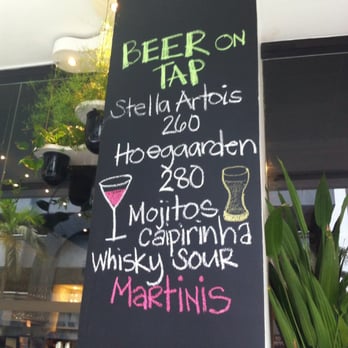 BEER ON
TAP
Stella Artois
260
Hoegaarden
280
Mojitos
caipirinha
whisky sour
Martinis